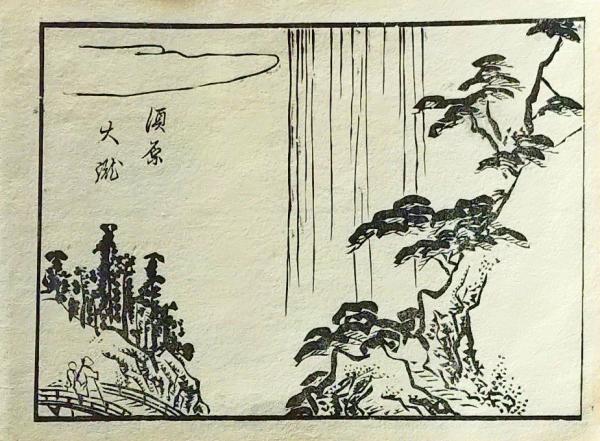 須原
大瀧